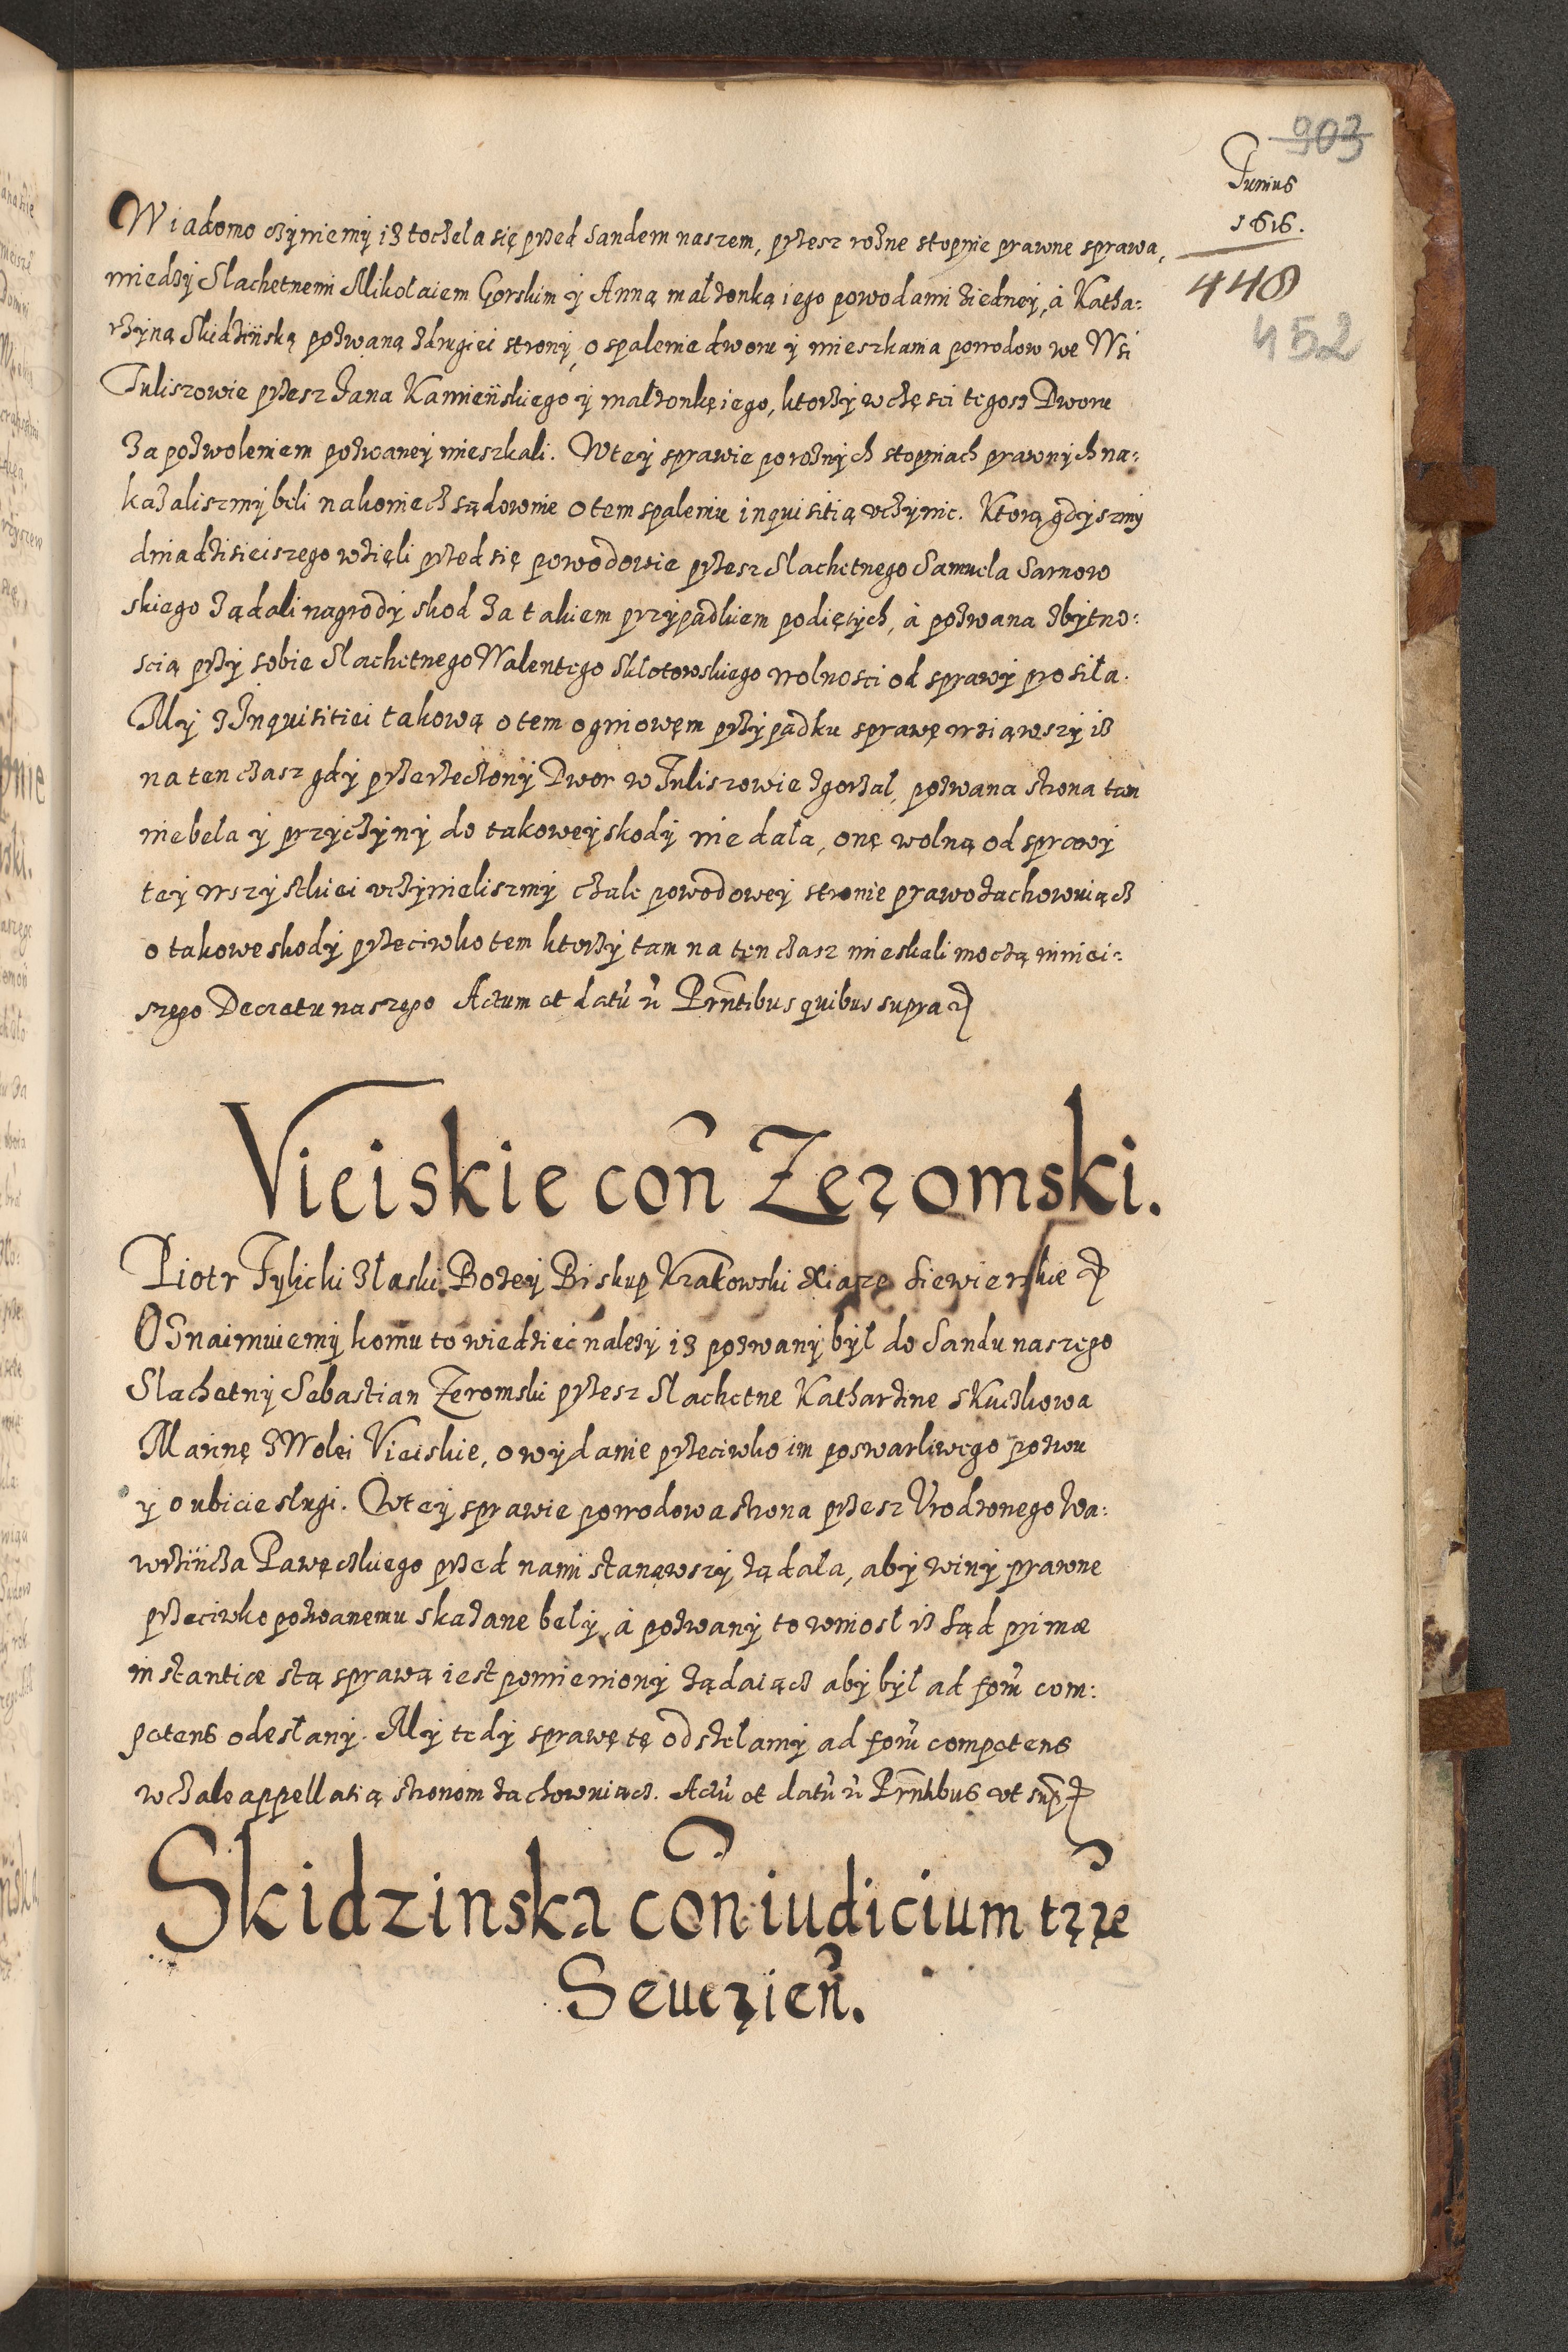 903
Junius
1616.
448
452
Wiadomo czÿniemÿ iz toczela się przed Sandem naszem, przesz rozne stopnie prawne sprawa,
miedzÿ Slachetnemi Mikołaiem Gorskim ÿ Anną małzonką iego powodami ziednej, á Katha:
rzÿną Skidzińską pozwaną z drugiei stronÿ, o spalenie dworu ÿ mieszkania powodow we Wsi
Tuliszowie przesz Jana Kamieńskiego ÿ małzonkę iego, ktorzÿ w częsci tegosz Dworu
za pozwoleniem pozwaneÿ mieszkali. W teÿ sprawie po roznÿch stopniach prawnÿch na:
kazaliszmÿ beli nakoniecz sądownie o tem spaleniu inquisitią vczÿnic. Ktorą gdÿszmÿ
dnia dzisieiszego wzięli przed się powodowie przesz Slachetnego Samuela Sarnow
skiego ządali nagrodÿ skod za takiem przÿpadkiem podiętÿch, á pozwana zbÿtno:
scią przÿ sobie Slachetnego Walentego Skłotowskiego wolnosci od sprawÿ prosiła.
Mÿ z Inquisitiei takową o tem ogniowęm przÿpadku sprawę wziąwszÿ iz
na ten czasz gdÿ przerzeczonÿ Dwor w Tuliszowie zgorzal, pozwana strona tam
niebela ÿ przÿczÿnÿ do takoweÿ skodÿ nie dała, onę wolną od sprawÿ
teÿ wszÿstkiei vczÿnieliszmÿ czale powodoweÿ stronie prawo zachowuiącz
o takowe skodÿ przeciwko tem ktorzÿ tam na tęn czasz mieskali moczą niniei:
szego Decretu naszego Actum et datū ū Prn̄tibus quibus supra
Vieiskie con̄ Zeromski.
Piotr Tÿlicki z łaski Bozeÿ Biskup Krakowski Xiąze Siewierskie
Oznaimuiemÿ komu to wiedziec nalezÿ iz pozwanÿ bÿl do Sandu naszego
Slachetnÿ Sebastian Zeromski przesz Slachetne Katharzine Skuczkowa
Mannę z Wolei Vieiskie, o wÿdanie przeciwko im poswarliwego pozwu
ÿ o ubicie slugi. W teÿ sprawie powodowa strona przesz Vrodzonego Wa:
wrzińcza Pawęczkiego przed nami stanąwszÿ ządala, abÿ winÿ prawne
przeciwko pozwanemu skazane belÿ, á pozwanÿ to wniosl iz Sąd primæ
instantiæ stą sprawą iest pomienionÿ ządaiącz abÿ bÿl ad forū com:
petens odesłanÿ. Mÿ tedÿ sprawę tę odsÿłamÿ ad forū competens
w czale appellatią stronom zachowuiącz. Actū et datū ū Prn̄tibus vt sup̄
Skidzinska con̄ iudicium trre
Seuerien̄.